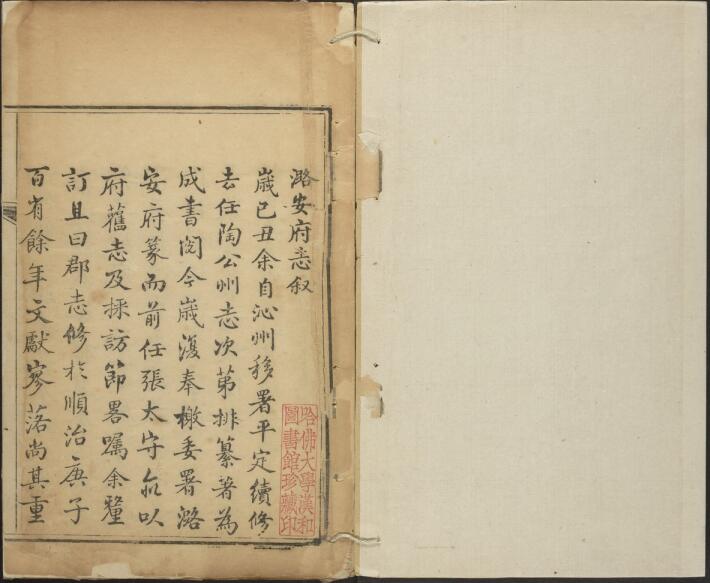 潞安府志叙
歲已丑余自沁州移署平定續修
去任陶公州志次第排纂著為
成書閱今歲復奉檄委署潞
安府篆而前任張太守亦以
府舊志及採訪節畧囑余釐
訂且曰郡志修於順治庚子
百有餘年文獻寥落尚其重
哈佛大學漢和
圖書館珍藏印